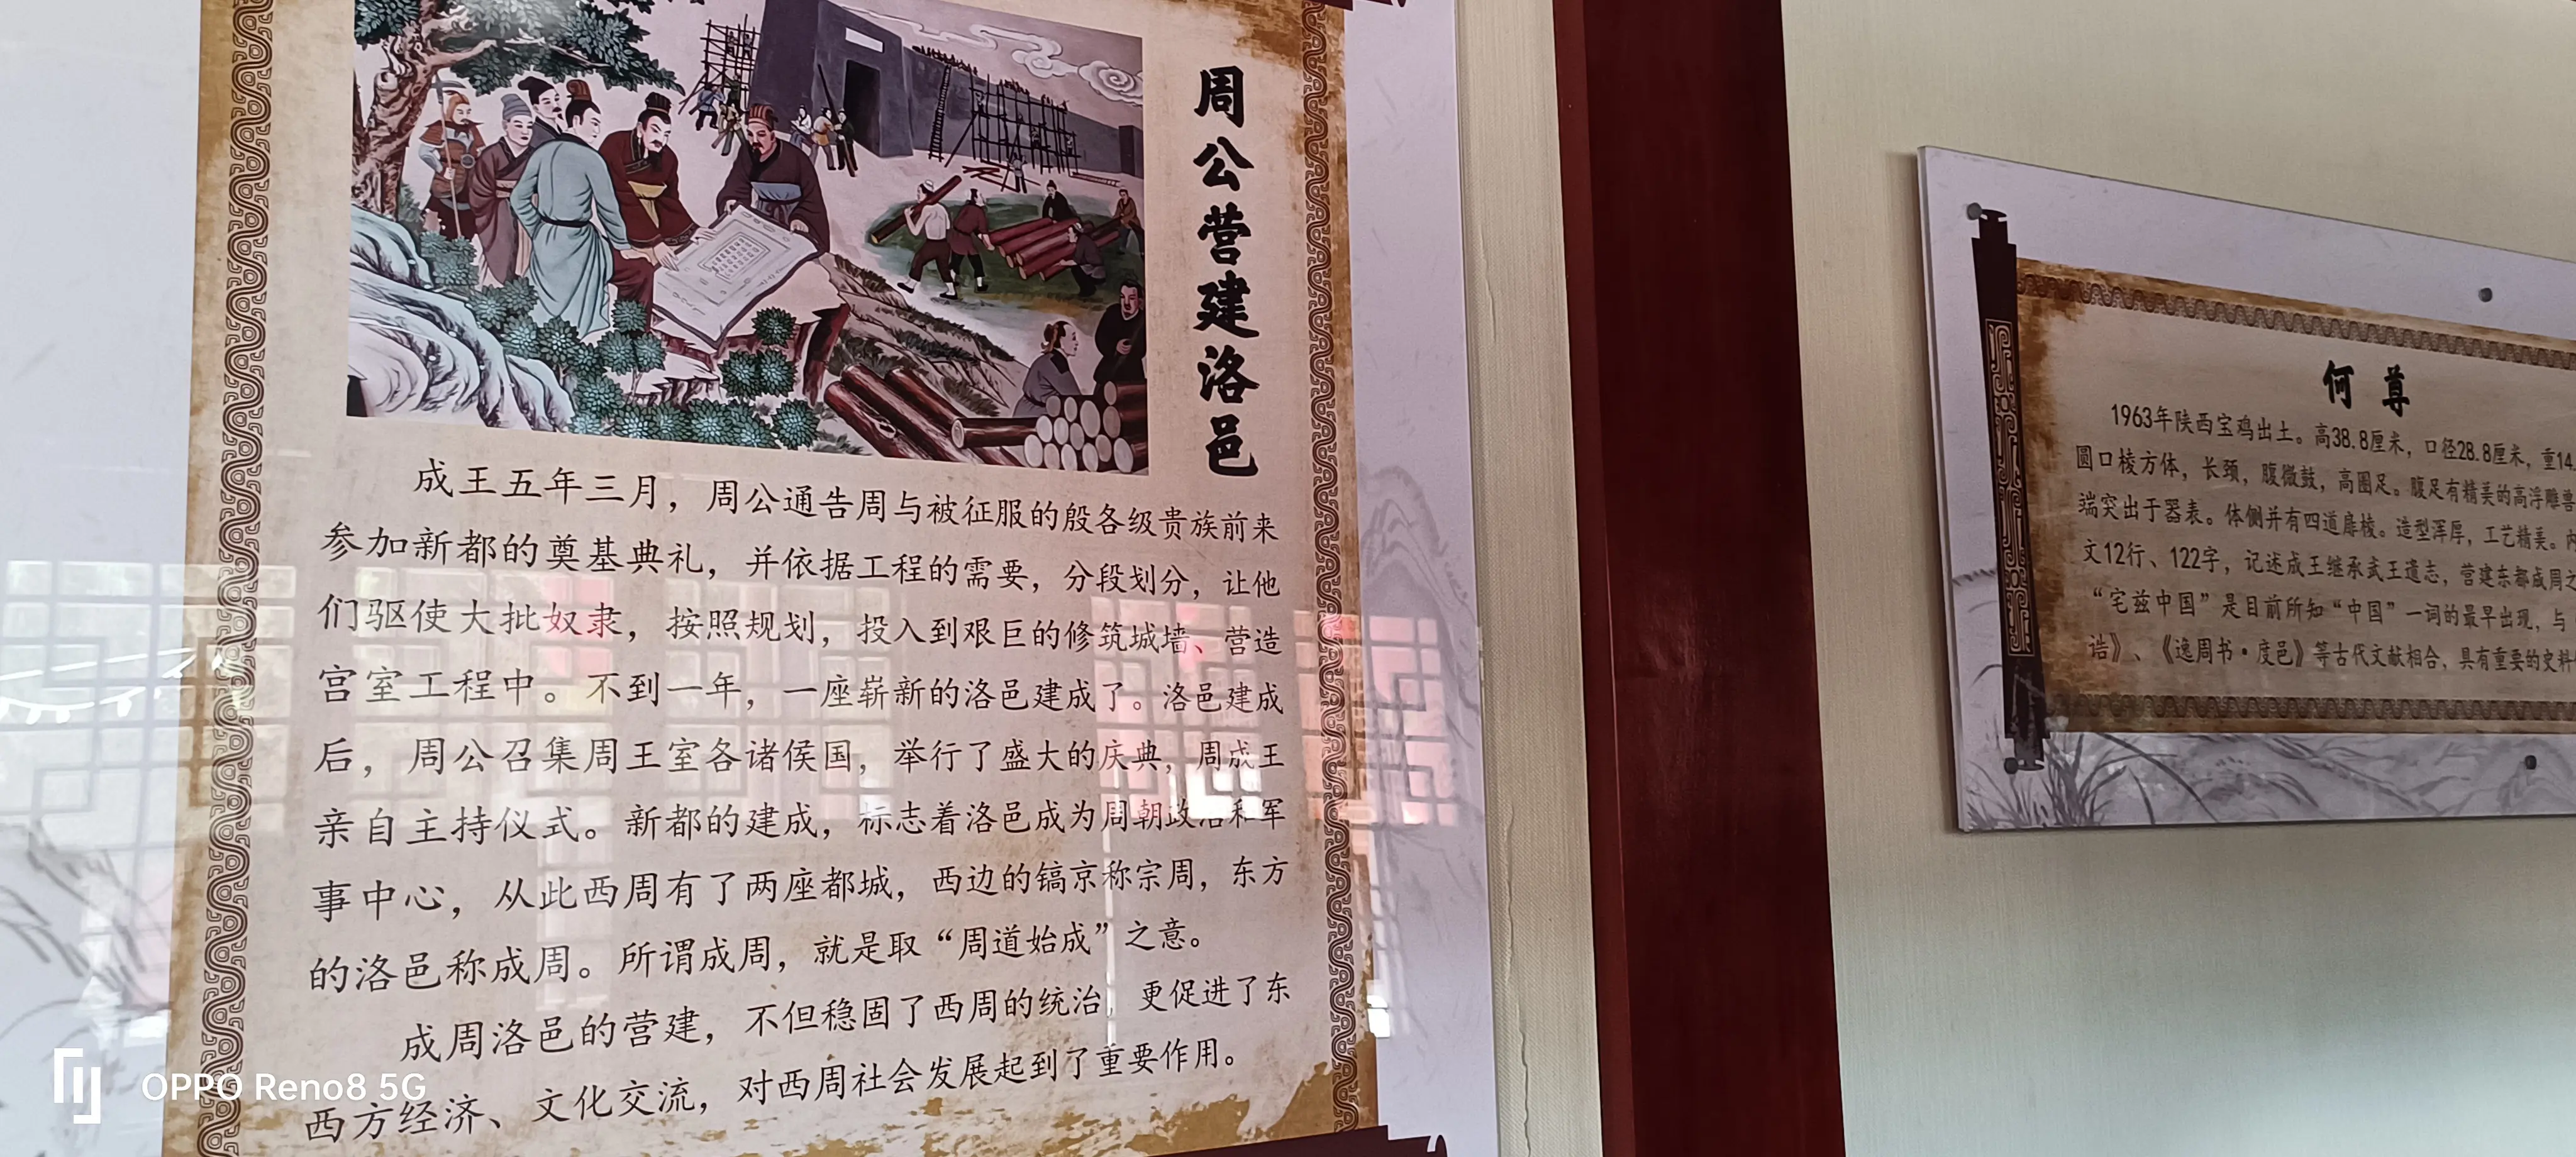 周公营建洛邑
成王五年三月，周公通告周与被征服的殷各级贵族前来
参加新都的奠基典礼，并依据工程的需要，分段划分，让他
们驱使大批奴隶，按照规划，投入到艰巨的修筑城墙、营造
宫室工程中。不到一年，一座崭新的洛邑建成了。洛邑建成
后，周公召集周王室各诸侯国，举行了盛大的庆典，周成王
亲自主持仪式。新都的建成，标志着洛邑成为周朝政治和军
事中心，从此西周有了两座都城，西边的镐京称宗周，东方
的洛邑称成周。所谓成周，就是取“周道始成”之意。
成周洛邑的营建，不但稳固了西周的统治，更促进了东
西方经济、文化交流，对西周社会发展起到了重要作用。
何尊
1963年陕西宝鸡出土。高38.8厘米，口径28.8厘米，重14.
圆口棱方体，长颈，腹微鼓，高圈足。腹足有精美的高浮雕兽
端突出于器表。体侧并有四道扉棱。造型浑厚，工艺精美。内
文12行、122字，记述成王继承武王遗志，营建东都成周之
“宅兹中国”是目前所知“中国”一词的最早出现，与
诰》、《逸周书·度邑》等古代文献相合，具有重要的史料
OPPO Reno8 5G